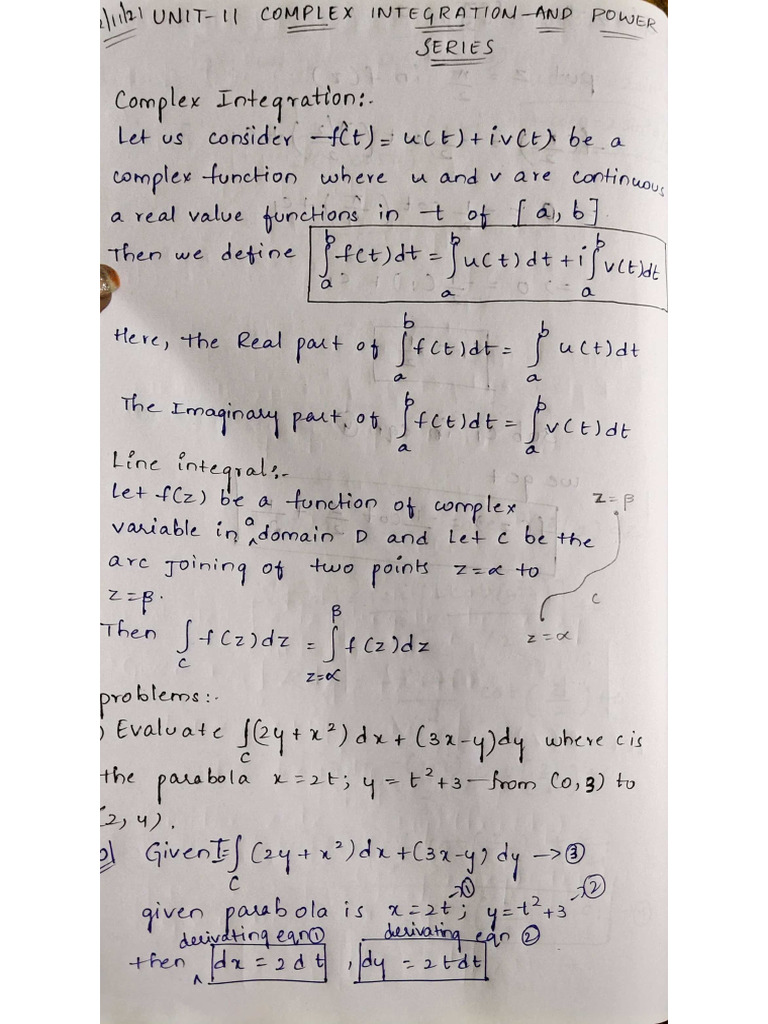 2/11/21 UNIT-II COMPLEX INTEGRATION AND POWER
SERIES
Complex Integration:-
Let us consider f(t) = u(t) + i v(t) be a
complex function where u and v are continuous
a real value functions in t of [a, b]
Then we define ∫_a^b f(t)dt = ∫_a^b u(t)dt + i ∫_a^b v(t)dt
Here, the Real part of ∫_a^b f(t)dt = ∫_a^b u(t)dt
The Imaginary part of ∫_a^b f(t)dt = ∫_a^b v(t)dt
Line integral:-
Let f(z) be a function of complex
variable in a domain D and let C be the
arc Joining of two points z=α to
z=β.
z=β
c
z=α
Then ∫_C f(z)dz = ∫_{z=α}^β f(z)dz
problems:-
) Evaluate ∫_C (2y + x²)dx + (3x-y)dy where c is
the parabola x=2t; y = t²+3 from (0,3) to
(2,4).
Given I=∫_C (2y + x²)dx + (3x-y)dy → ③
given parabola is x=2t →①; y=t²+3 →②
derivating eqn① derivating eqn ②
then ^ dx = 2dt , dy = 2tdt